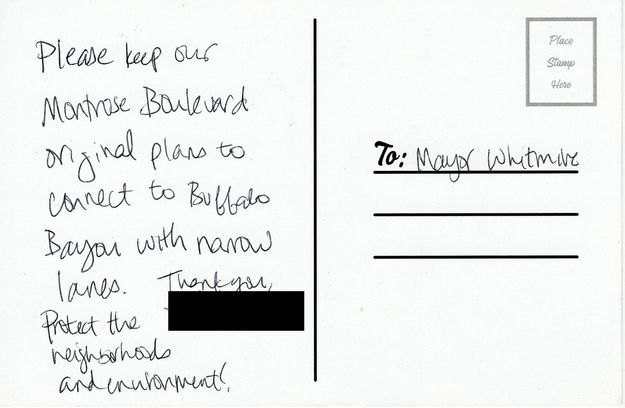 Please keep our
Montrose Boulevard
original plans to
connect to Buffalo
Bayou with narrow
lanes. Thank you,
Protect the
neighborhoods
and environment!
Place
Stamp
Here
To: Mayor Whitmire